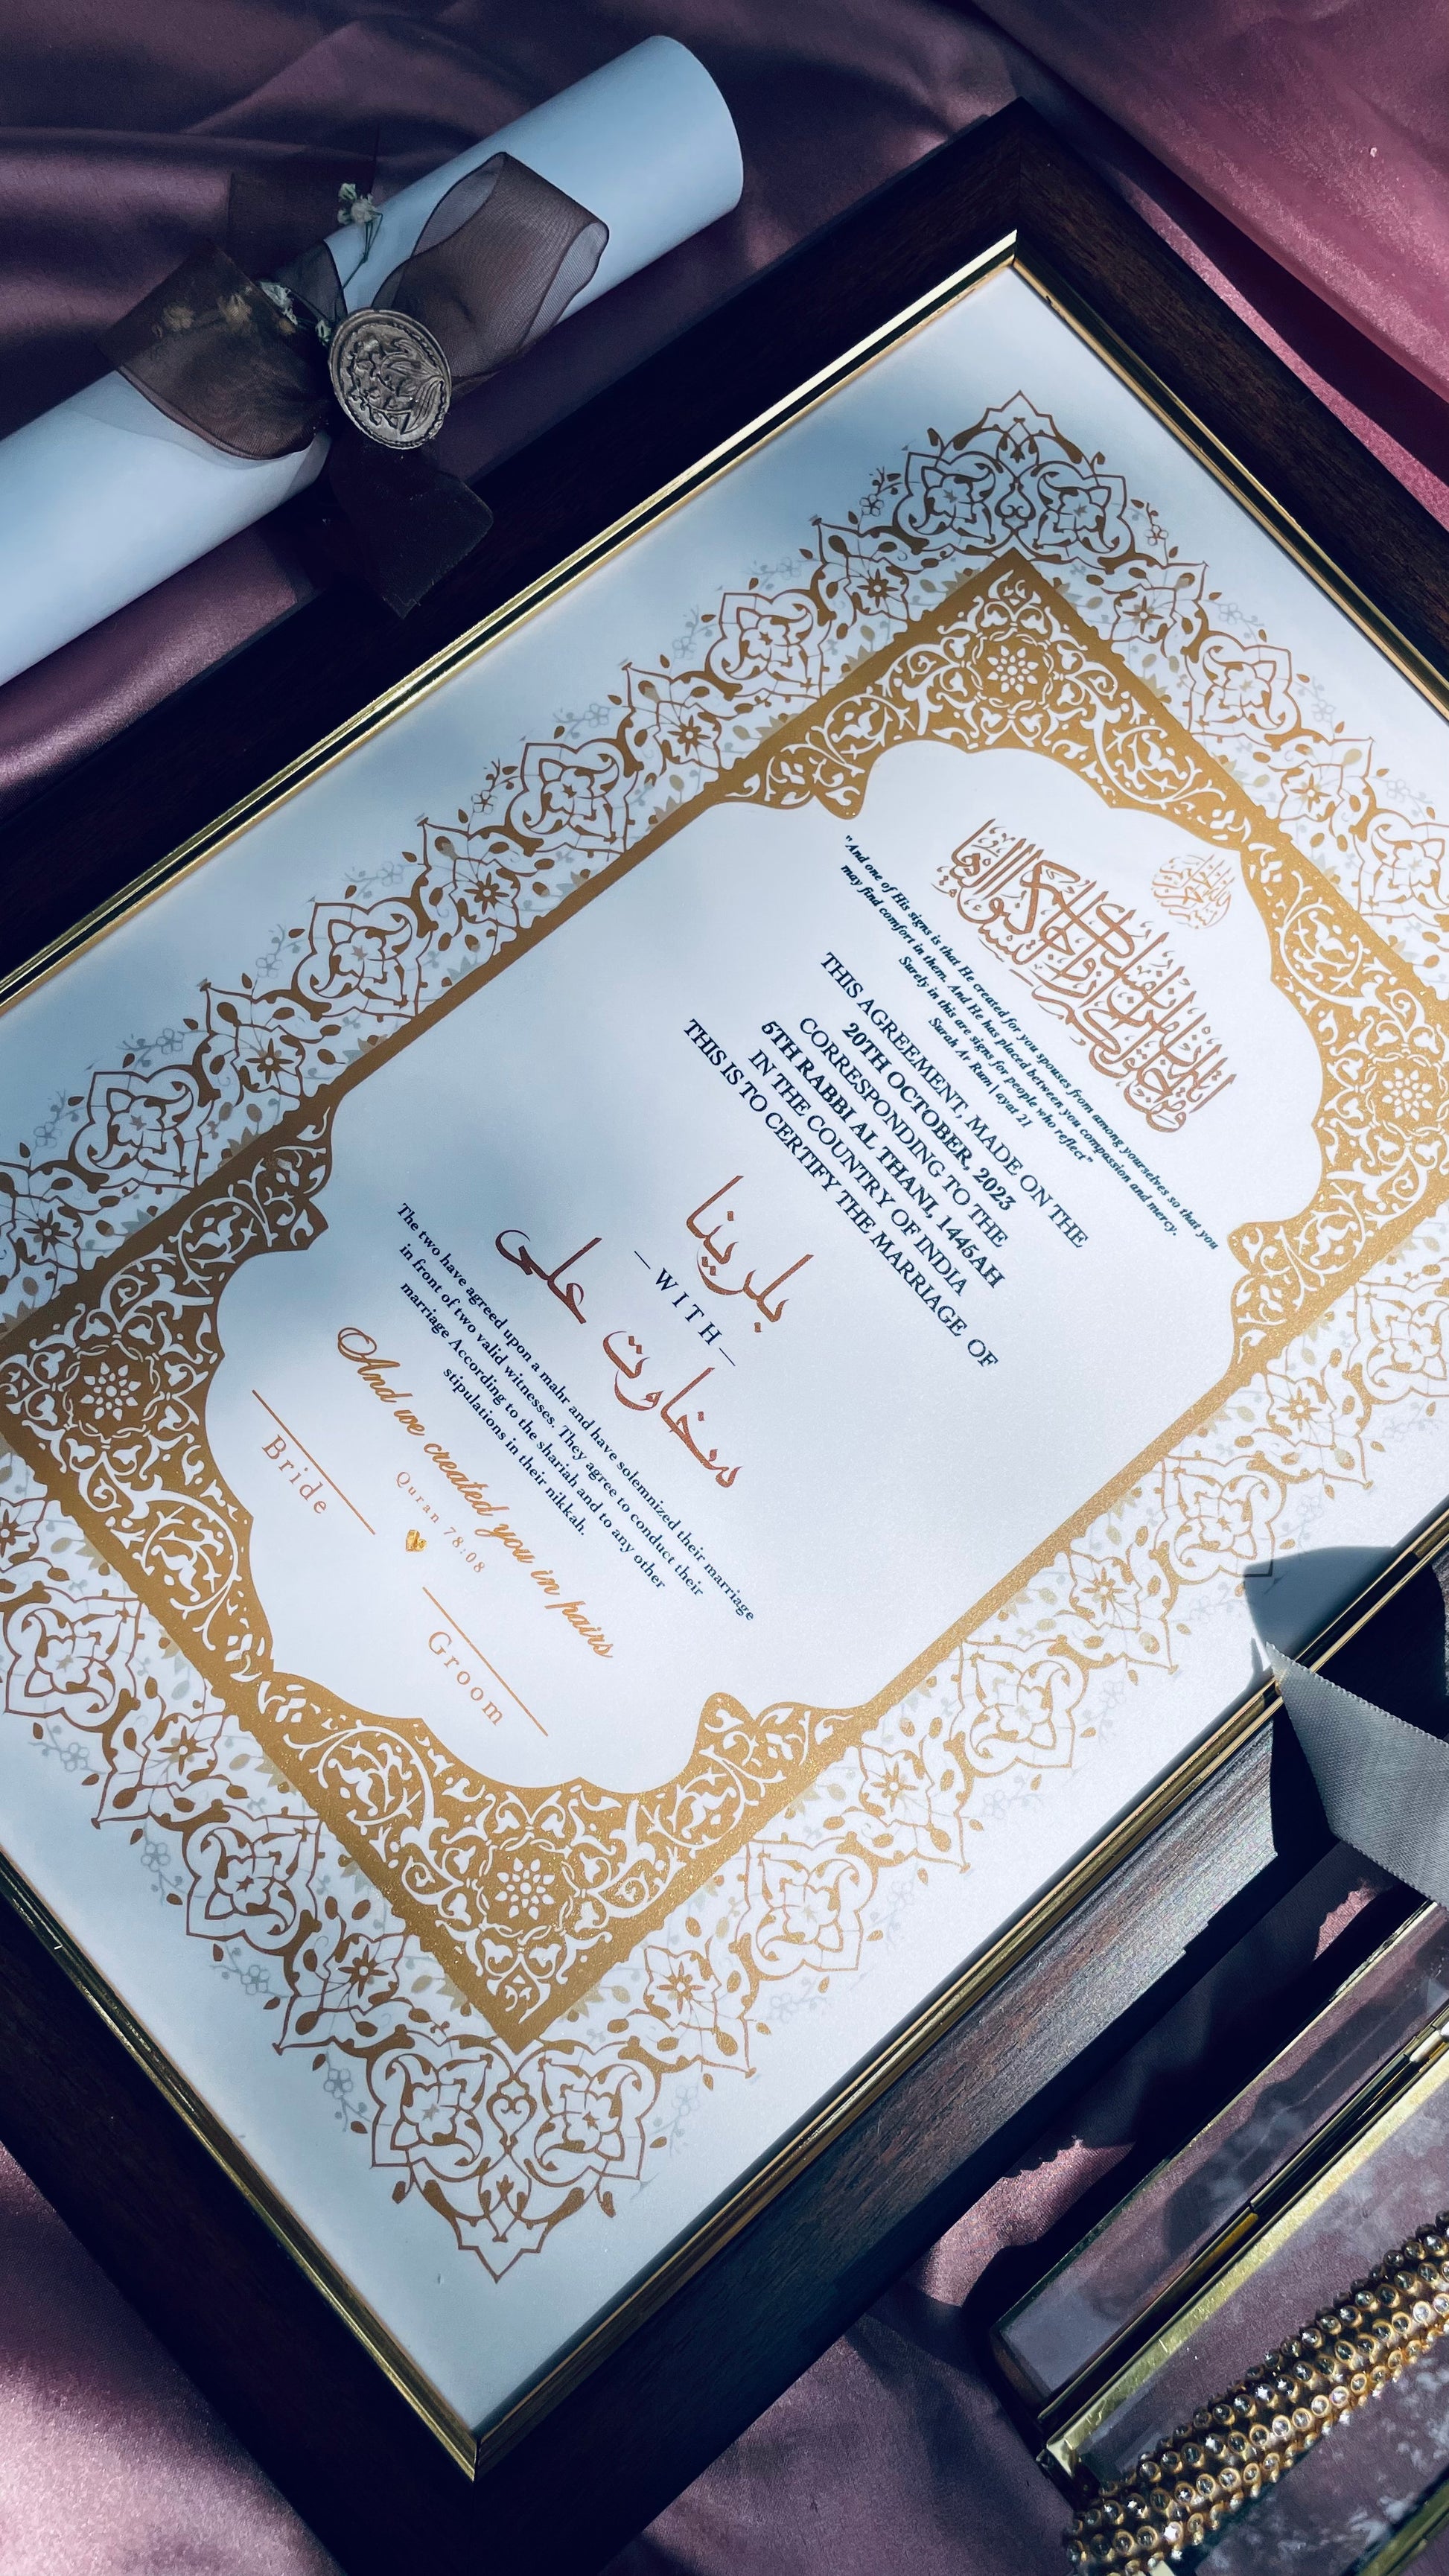 وَمِنْ آيَاتِهِ أَنْ خَلَقَ لَكُمْ مِنْ أَنْفُسِكُمْ أَزْوَاجًا لِتَسْكُنُوا إِلَيْهَا
"And one of His signs is that He created for you spouses from among yourselves so that you
may find comfort in them. And He has placed between you compassion and mercy.
Surely in this are signs for people who reflect"
Surah Ar Rum | ayat 21
THIS AGREEMENT, MADE ON THE
20TH OCTOBER, 2023
CORRESPONDING TO THE
5TH RABBI AL THANI, 1445AH
IN THE COUNTRY OF INDIA
THIS IS TO CERTIFY THE MARRIAGE OF
بلرينا
– WITH –
سخاوت على
The two have agreed upon a mahr and have solemnized their marriage
in front of two valid witnesses. They agree to conduct their
marriage According to the shariah and to any other
stipulations in their nikkah.
And we created you in pairs
Quran 78:08
Bride
Groom